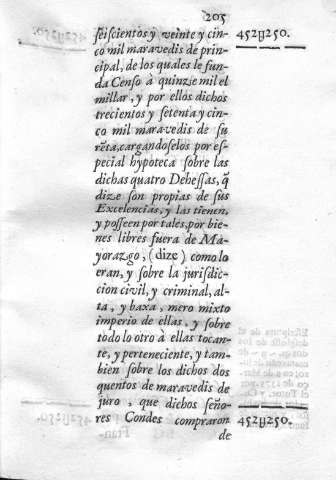 205
ſeiscientos y veinte y cin- 452ỹ250.
co mil maravedis de prin-
cipal, de los quales ſe fun-
da Cenſo à quinze mil el
millar, y por ellos dichos
trecientos y ſetenta y cin-
co mil maravedis de ſu
rẽta, cargandoſelos por eſ-
pecial hypoteca ſobre las
dichas quatro Deheſſas, q̃
dize ſon propias de ſus
Excelencias, y las tienen,
y poſſeen por tales, por bie-
nes libres fuera de Ma-
yorazgo, (dize) como lo
eran, y ſobre la juriſdic-
cion civil, y criminal, al-
ta, y baxa, mero mixto
imperio de ellas, y ſobre
todo lo otro à ellas tocan-
te, y perteneciente, y tam-
bien ſobre los dichos dos
quentos de maravedis de
juro, que dichos ſeño-
res Condes compraron 452ỹ250.
de